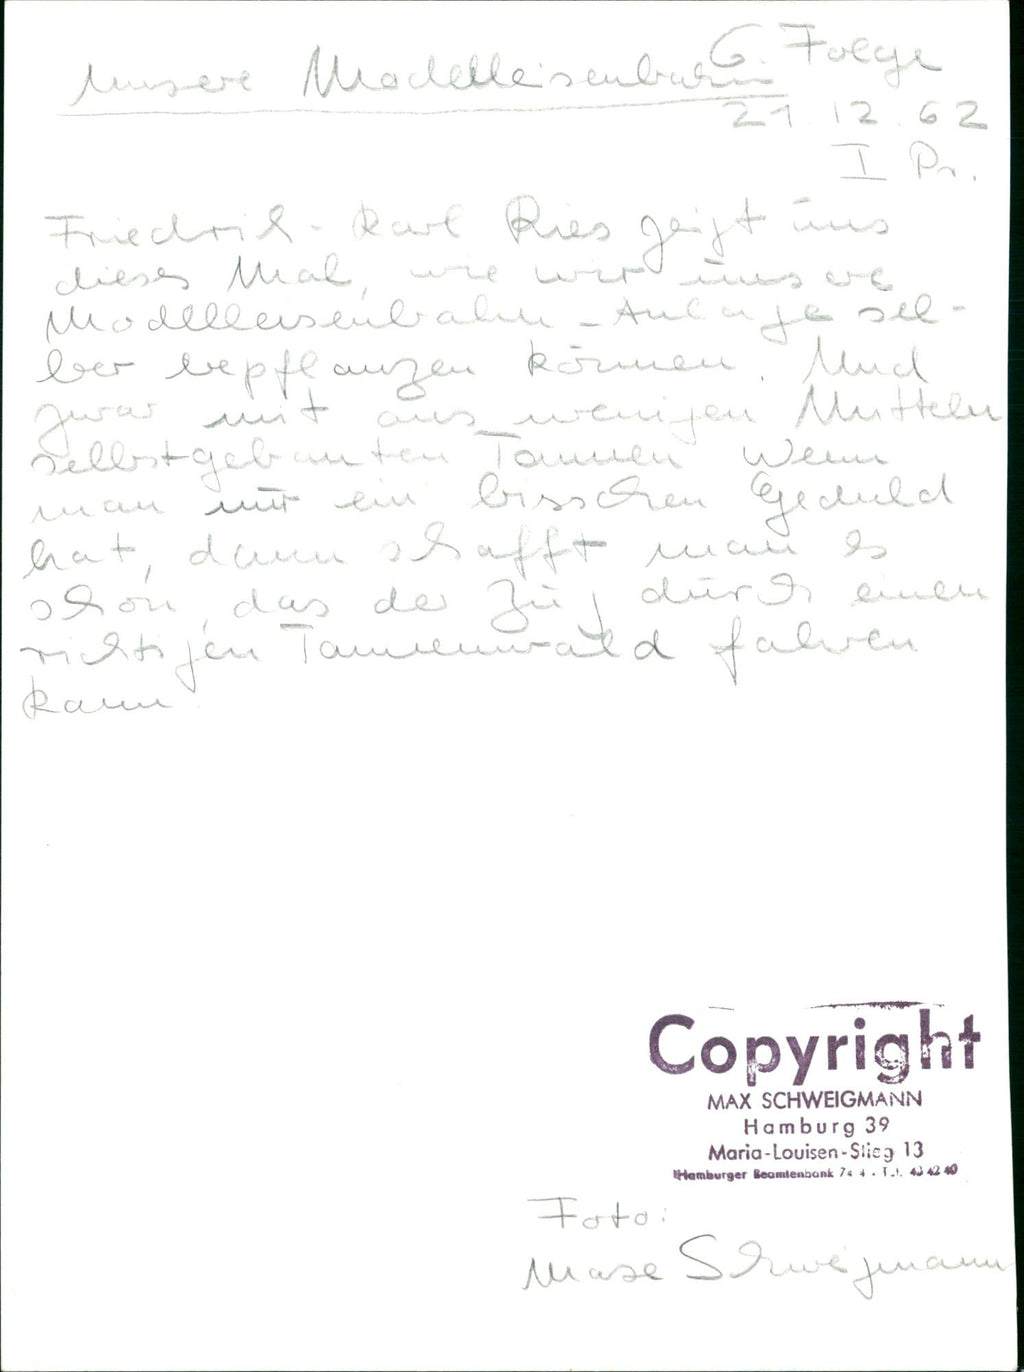 Unsere Modelleisenbahn 6. Folge
21.12.62
I Pr.
Friedrich-Karl Ries zeigt uns
dieses Mal, wie wir unsere
Modelleisenbahn-Anlage sel-
ber bepflanzen können. Und
zwar mit aus wenigen Mitteln
selbstgebauten Tannen. Wenn
man nur ein bisschen Geduld
hat, dann schafft man es
schon, das der Zug durch einen
richtigen Tannenwald fahren
kann.
Copyright
MAX SCHWEIGMANN
Hamburg 39
Maria-Louisen-Stieg 13
Hamburger Beamtenbank
Foto:
Schweigmann